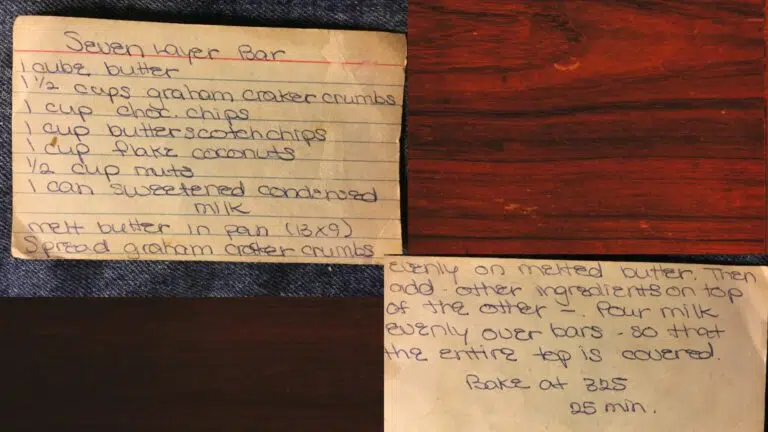 Seven Layer Bar
1 cube butter
1 1/2 cups graham craker crumbs
1 cup choc. chips
1 cup butterscotch chips
1 cup flake coconuts
1/2 cup nuts
1 can sweetened condensed
milk
melt butter in pan (13x9)
Spread graham craker crumbs
evenly on melted butter. Then
add other ingredients on top
of the other -. Pour milk
evenly over bars - so that
the entire top is covered.
Bake at 325
25 min.